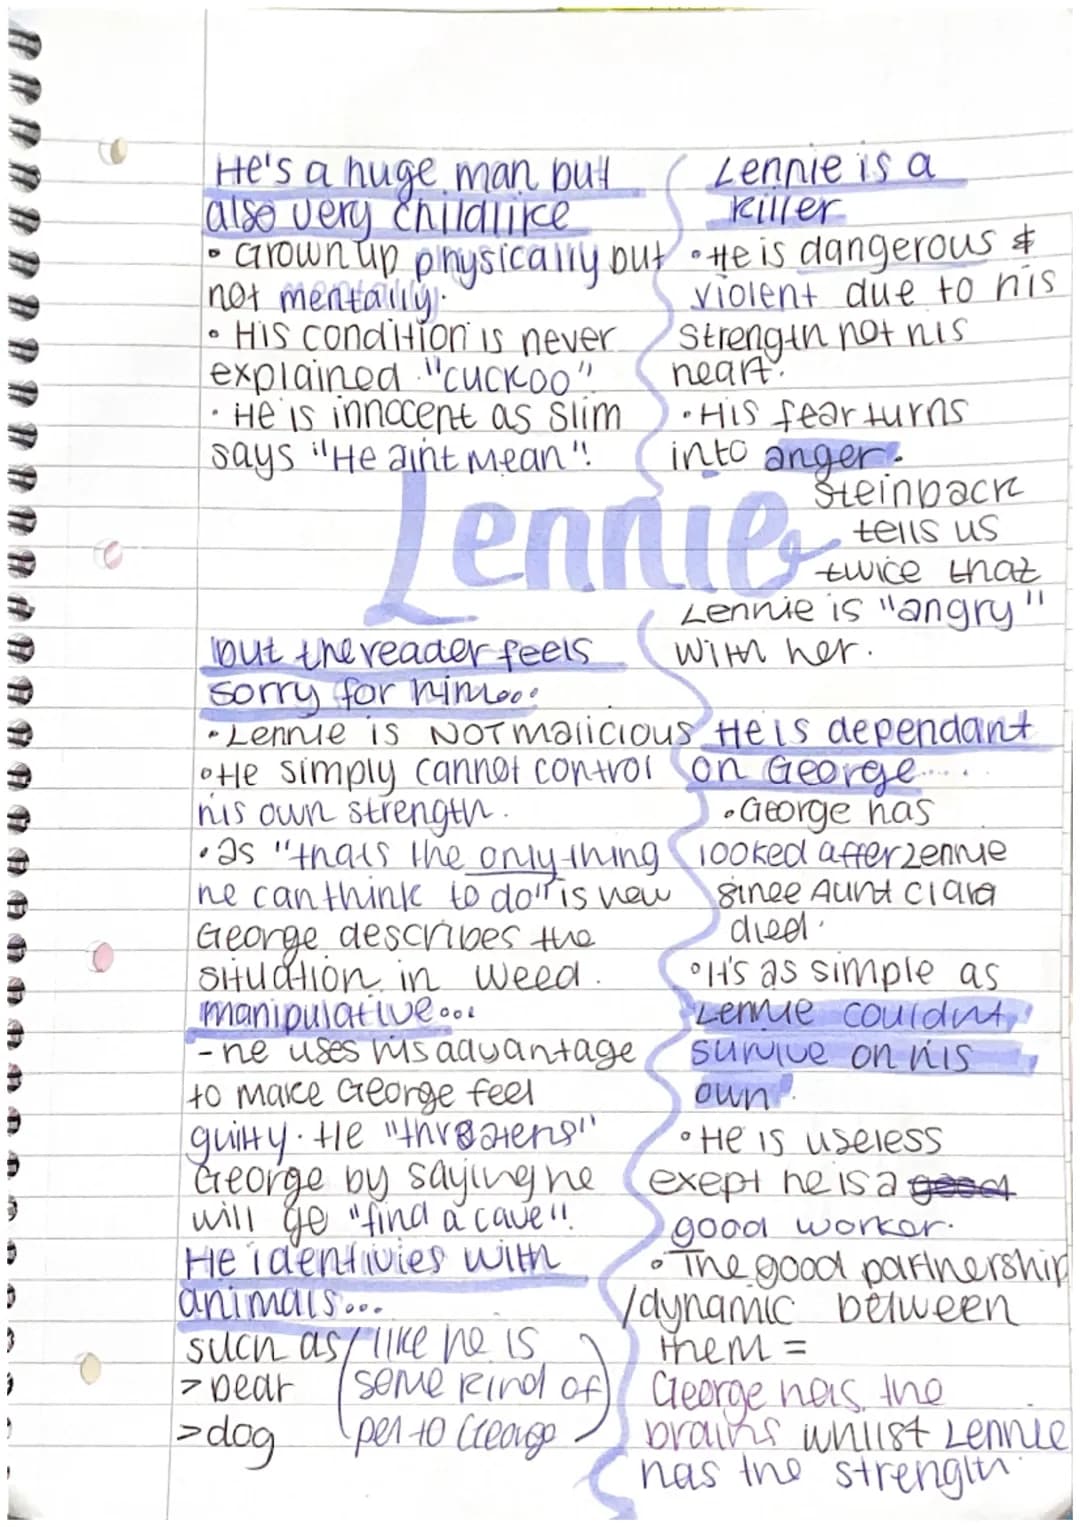 He's a huge man but
also very childlike
• Grown up physically but
not mentally.
• His condition is never
explained. "cuckoo"
• He is innocent as Slim
says "He aint Mean".
Lennie is a
killer
• He is dangerous &
violent due to his
strength not his
heart.
• His fear turns
into anger.
Steinback
tells us
twice that
Lennie is "angry"
with her.
Lennie
but the reader feels
sorry for him...
• Lennie is NOT malicious
• He simply cannot control
his own strength.
• as "thats the only thing
he can think to do" is how
George describes the
situation in weed.
manipulative...
- he uses his advantage
to make George feel
guilty. He "threatens"
George by saying he
will go "find a cave".
He identivies with
animals...
such as
> bear
> dog
like he is
some kind of
pet to George
He is dependant
on George.....
• George has
looked after Lennie
since Aunt Clara
died.
• It's as simple as
Lennie couldnt
survive on his
own.
• He is useless
exept he is a good
good worker.
• The good partnership
/dynamic between
them =
George has the
brains whilst Lennie
has the strength.